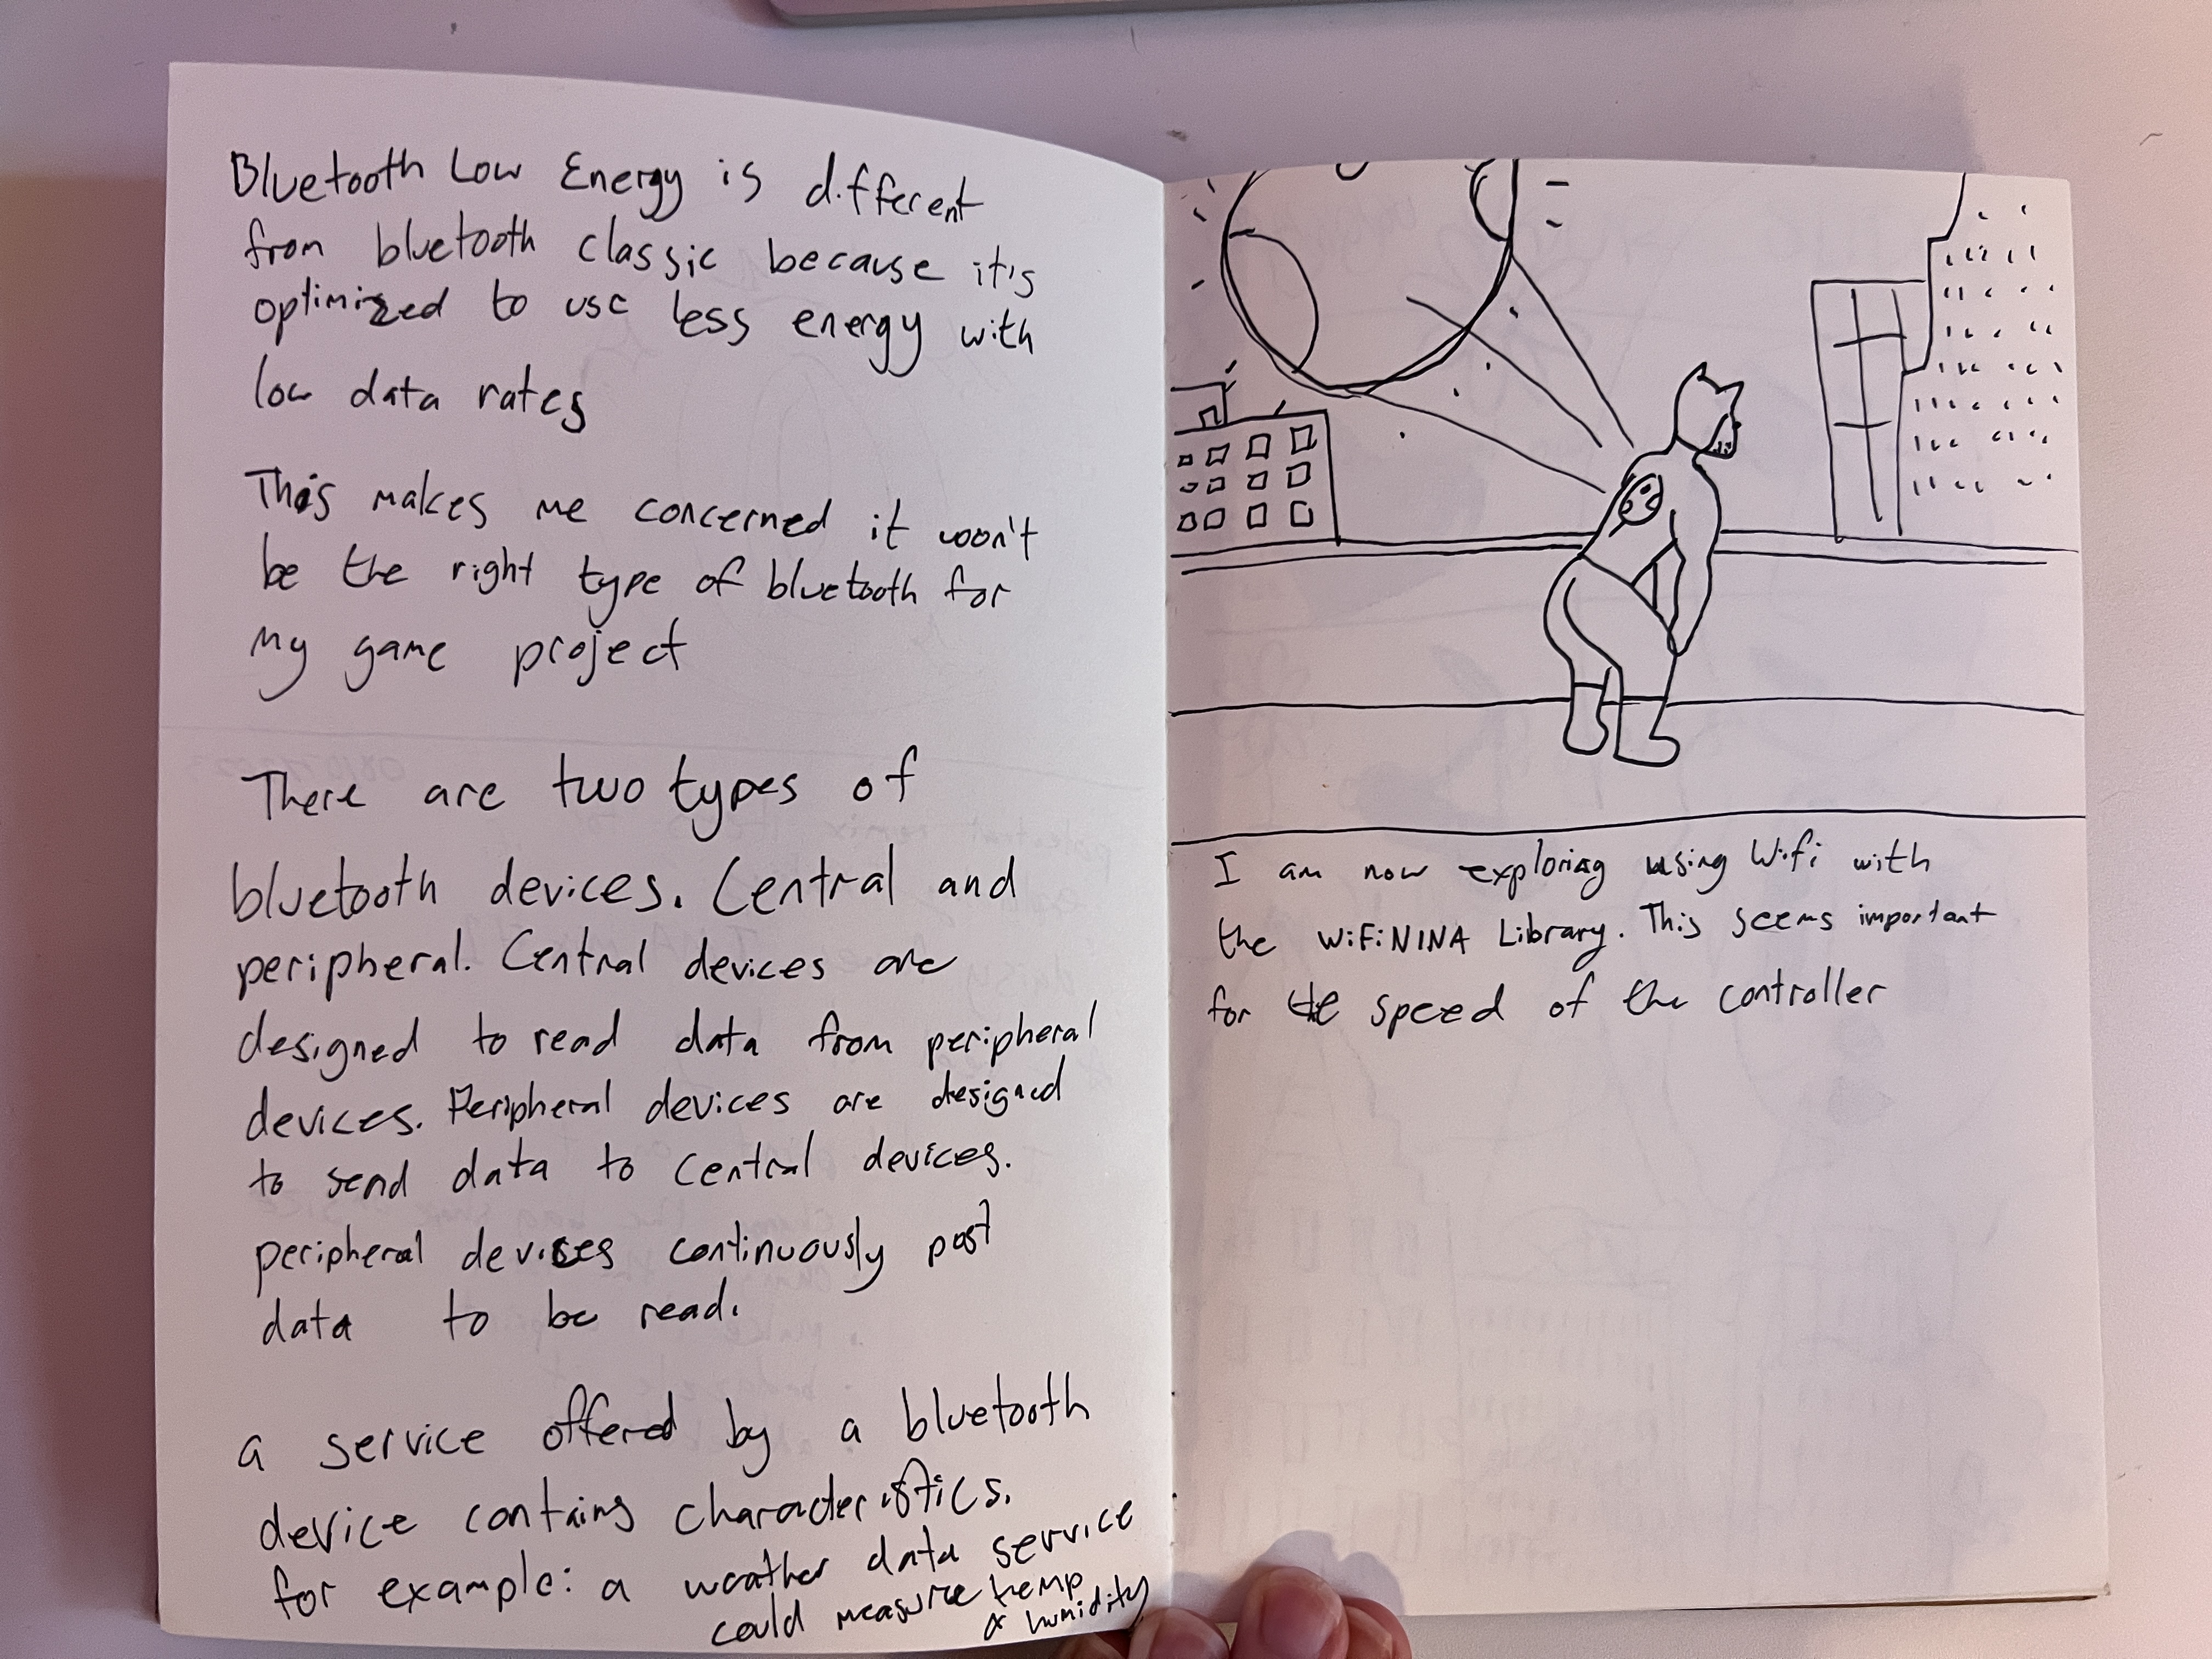 Bluetooth Low Energy is different
from bluetooth classic because it's
optimized to use less energy with
low data rates
This makes me concerned it won't
be the right type of bluetooth for
my game project
There are two types of
bluetooth devices. Central and
peripheral. Central devices are
designed to read data from peripheral
devices. Peripheral devices are designed
to send data to central devices.
peripheral devices continuously post
data to be read.
a service offered by a bluetooth
device contains characteristics.
for example: a weather data service
could measure temp
& humidity
I am now exploring using Wifi with
the WiFiNINA Library. This seems important
for the speed of the controller